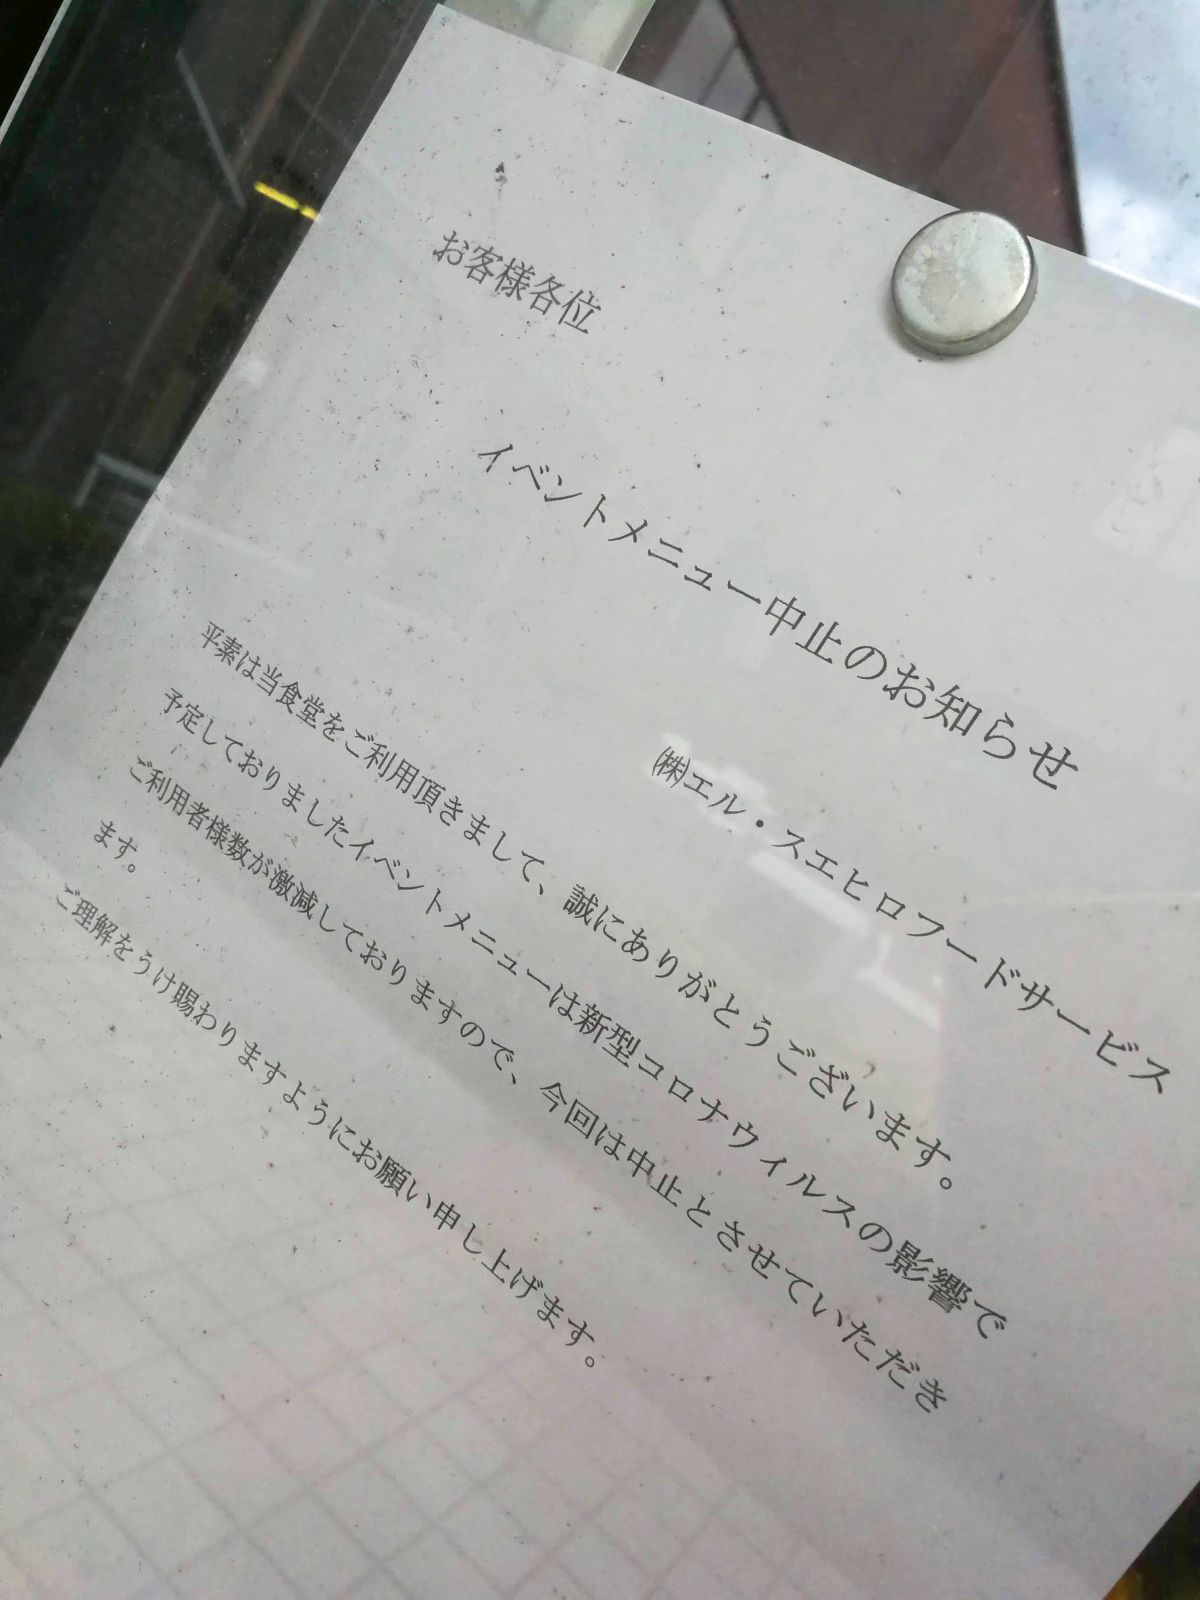 お客様各位
イベントメニュー中止のお知らせ
㈱エル・スエヒロフードサービス
平素は当食堂をご利用頂きまして、誠にありがとうございます。
予定しておりましたイベントメニューは新型コロナウィルスの影響で
ご利用者様数が激減しておりますので、今回は中止とさせていただき
ます。
ご理解をうけ賜わりますようにお願い申し上げます。